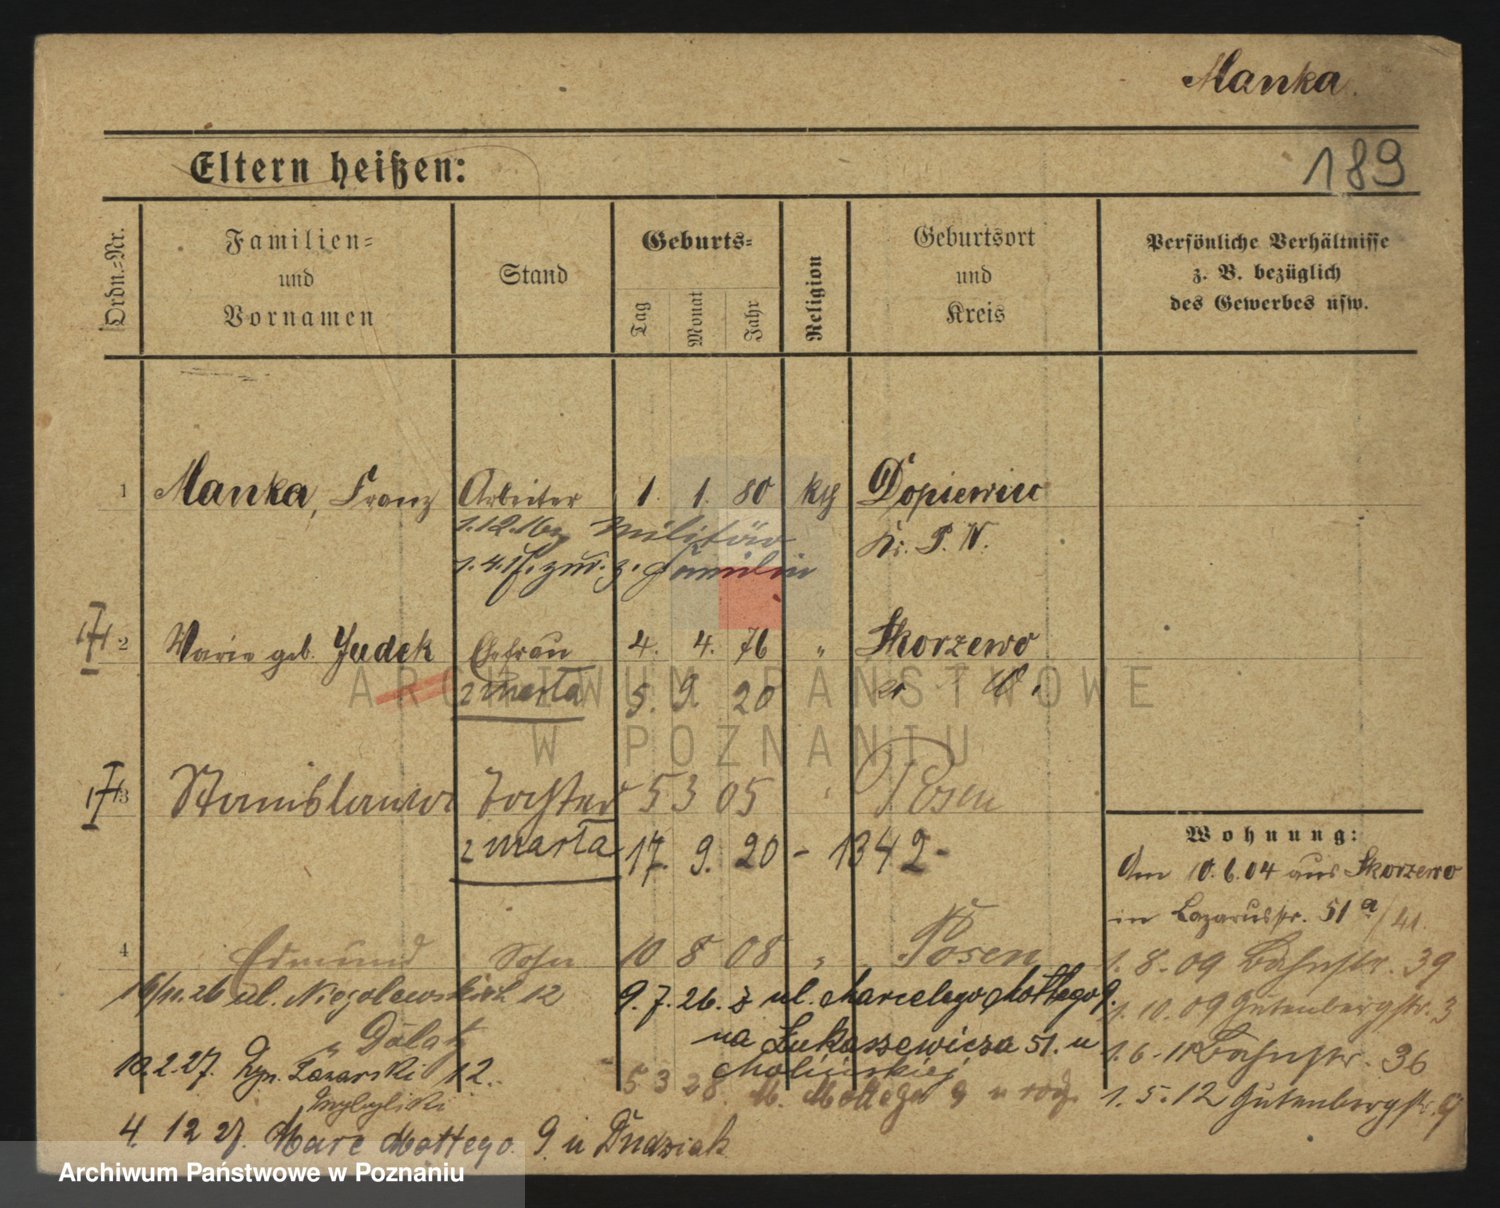 Manka.
189
Eltern heißen:
Ordn.-Nr.
Familien-
und
Vornamen
Stand
Geburts-
Tag
Monat
Jahr
Religion
Geburtsort
und
Kreis
Persönliche Verhältnisse
z. B. bezüglich
des Gewerbes usw.
1 Manka, Franz Arbeiter 1. 1. 80 kth Dopiewiec
1.12.16 Militär Kr. P. W.
1.4. zur. z. Familie
2 Marie geb. Judek Ehefrau 4. 4. 76 " Skorzewo
zmarła 5. 9. 20 W.
3 Stanislawa Tochter 5 3 05 " Posen
zmarła 17. 9. 20 - 1342 -
Wohnung:
Am 10.6.04 aus Skorzewo
in Lazarusstr. 51a/41.
4 Edmund Sohn 10 8 08 " Posen
1.8.09 Bahnstr. 39
16/11.26 ul. Niegolewskich 12
9.7.26. z ul. Marcelego Mottego 9.
1.10.09 Gutenbergstr. 3
na Łukaszewicza 51. u
1.6.11 Bahnstr. 36
10.2.27. Ryn. Lazarski 12.
5 3 28. M. Mottego 9 u
1.5.12 Gutenbergstr. 9
4 12 27. Marc Mottego 9 u Dudziak
ARCHIWUM PAŃSTWOWE
W POZNANIU
Archiwum Państwowe w Poznaniu